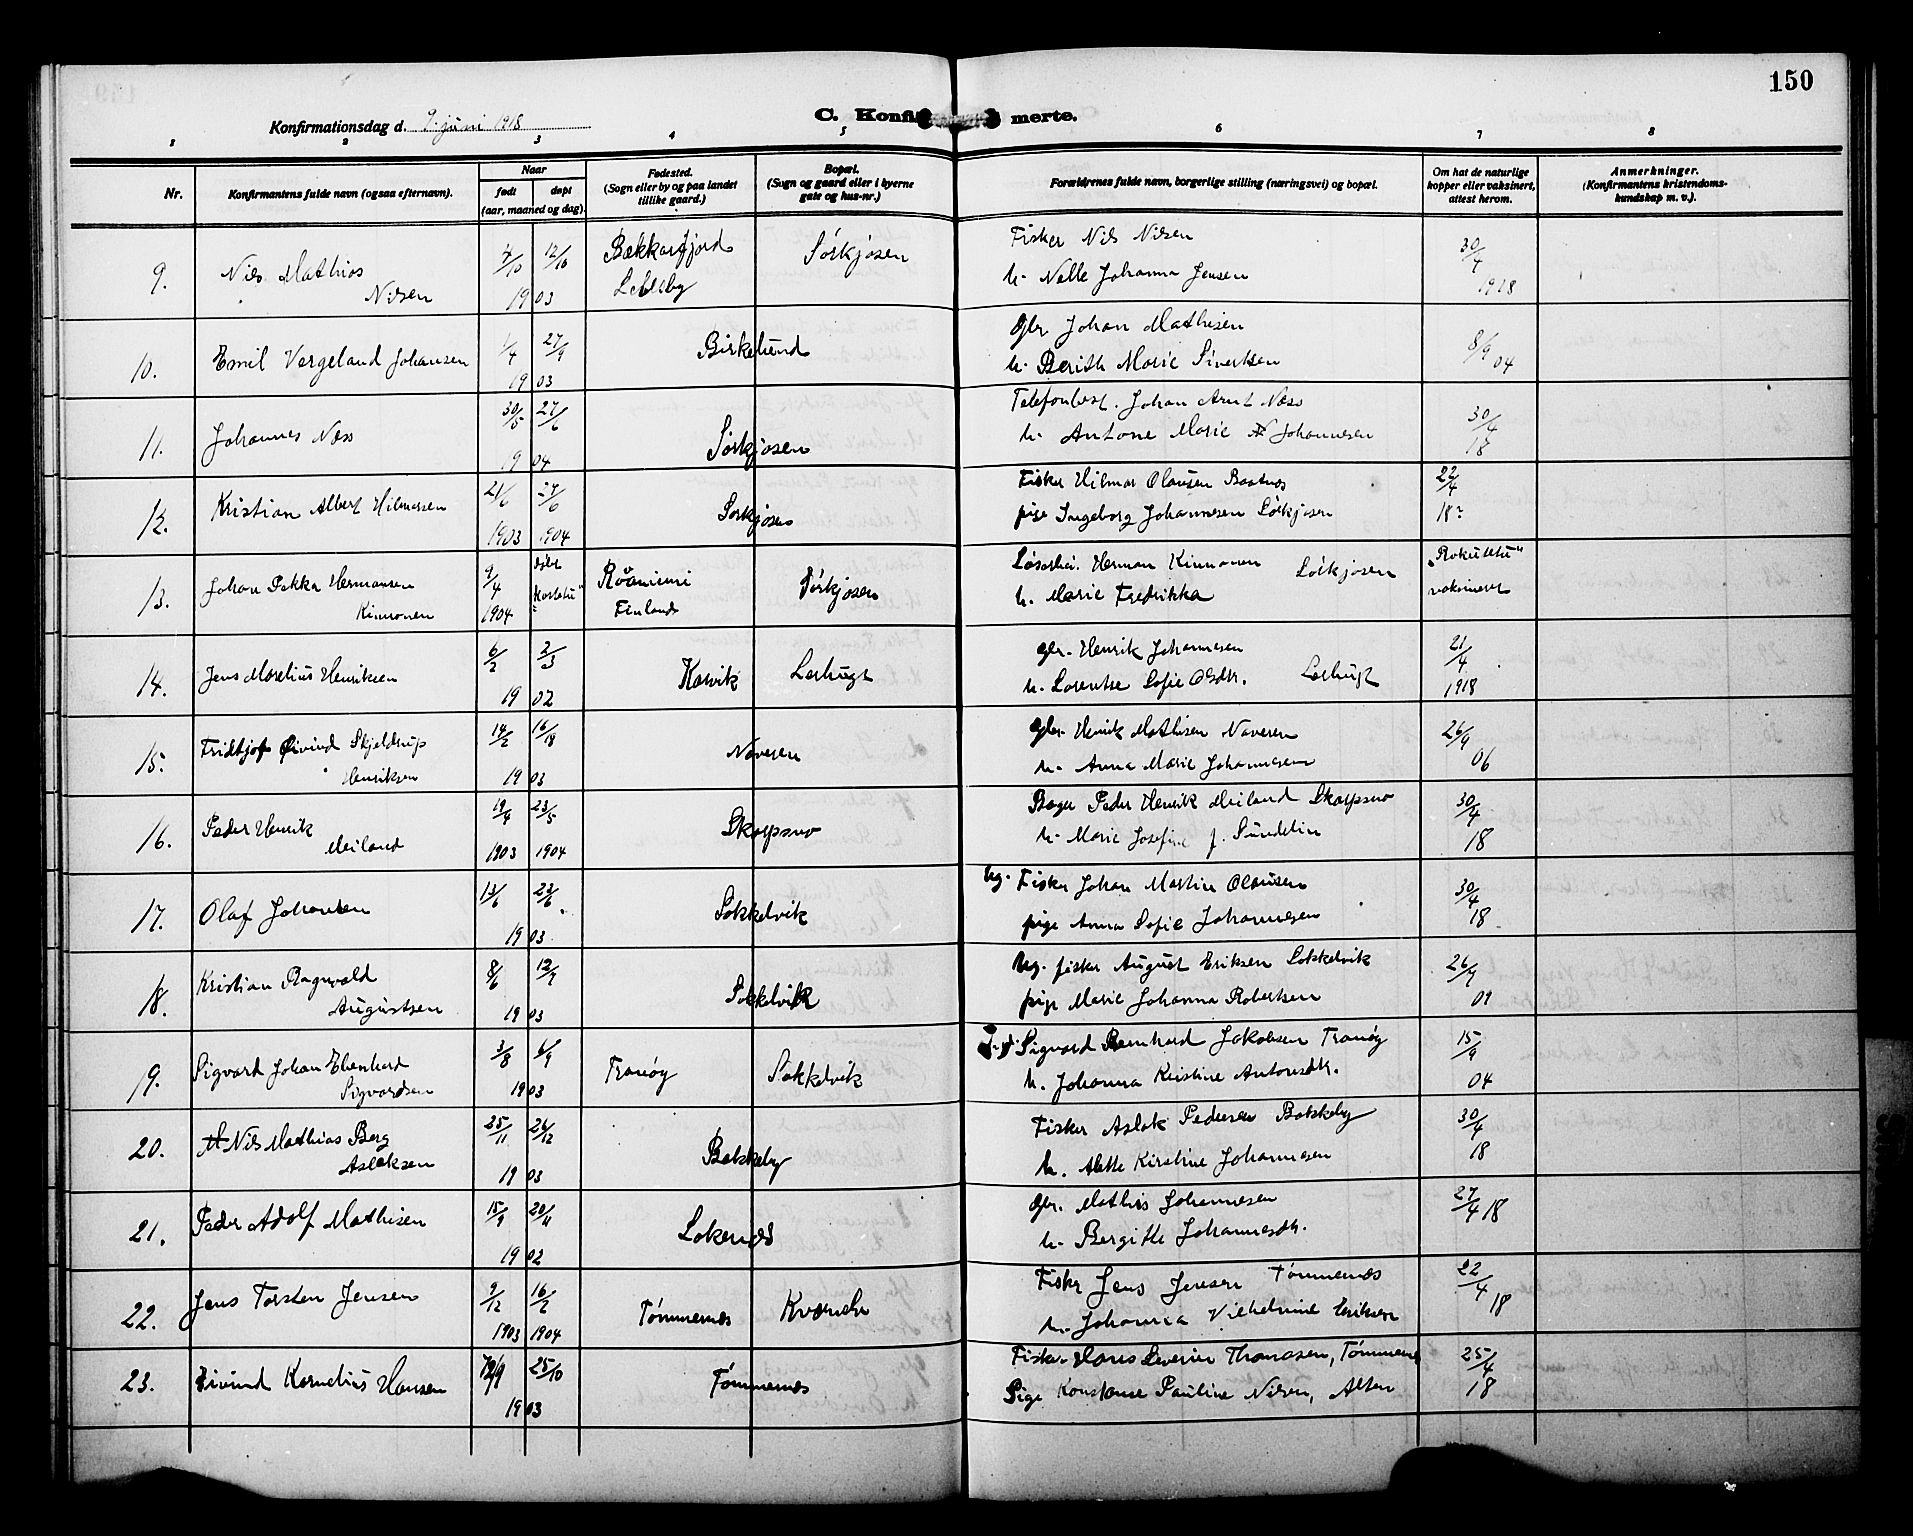 150
Konfirmationsdag d. 9. juni 1918
C. Konfi merte.
1 2 3 4 5 6 7 8
Nr. Konfirmantens fulde navn (ogsaa efternavn). Naar født døpt (aar, maaned og dag). Fødested. (Sogn eller by og paa landet tillike gaard.) Bopæl. (Sogn og gaard eller i byerne gate og hus-nr.) Forældrenes fulde navn, borgerlige stilling (næringsvei) og bopæl. Om hat de naturlige kopper eller vaksinert, attest herom. Anmerkninger. (Konfirmantens kristendomskundskap m. v.).
9. Nils Mathias 12/10 Bekkarfjord Sörkjosen Fisker Nils Nilsen 30/4
Nilsen 1903 Lebesby h. Nelle Johanna Jensen 1918
10. Emil Vergeland Johansen 1/4 27/9 Birkelund gbr. Johan Mathisen 8/9
1903 h. Berith Marie Sivertsen 04
11. Johannes Næss 30/5 27/6 Sörkjosen Telefonbest. Johan Arnt Næss 30/4
1904 h. Antone Marie Johannesen 18
12. Kristian Albert Hilmarsen 21/6 Sörkjosen Fisker Hilmar Olausen Baatnes 22/4
1903 1904 pige Ingeborg Johannesen Sörkjosen 18
13. Johan Pekka Hermansen 9/4 Finland Sörkjosen Herman Kinnonen Sörkjosen
Kinnonen 1904 h. Marie Fredrikka vaksinert
14. Jens Marelius Henriksen 6/2 2/3 Kasvik Lerhugt gbr. Henrik Johannesen 21/4
1902 h. Lorentse Sofie Olsdtr. Lerhugt 1918
15. Fridtjof Øivind Skjeldrup 14/2 Naveren gbr. Henrik Mathisen Naveren 26/9
Henriksen 1903 h. Anna Marie Johannesen 06
16. Peder Henrik 19/4 23/5 Skorpsno Peder Henrik Meiland Skorpsno 30/4
Meiland 1903 1904 h. Marie Josefine f. Sundelin 18
17. Olaf Johansen 13/6 23/6 Sokkelvik Ug. Fisker Johan Martin Olausen 30/4
1903 pige Anna Sofie Johannesen 18
18. Kristian Ragnvald 8/6 12/7 Sokkelvik Ug. fisker August Eriksen Sokkelvik
Augustsen 1903 pige Marie Johanna Robertsen 09
19. Sigvard Johan Ebenhard 3/8 6/9 Tranöy Sokkelvik Sigvard Bernhard Jakobsen Tranöy 15/9
Sigvardsen 1903 h. Johanna Kristine Antonsdtr. 04
20. Nils Mathias Berg 25/11 26/12 Bakkeby Fisker Aslak Pedersen Bakkeby 30/4
Aslaksen 1903 h. Mette Kirstine Johannesen 18
21. Peder Adolf Mathisen 15/9 20/11 Lokenes gbr. Mathis Johannesen 27/4 18
1902 h. Bergitte Johannesdtr.
22. Jens Torsten Jensen 9/12 16/2 Tömmernes Fisker Jens Jensen Tömmernes 22/4 18
1903 1904 h. Johanna Vilhelmine Eriksen
23. Eivind Kornelius Hansen 25/10 Tömmernes Fisker Hans Severin Thomasen, Tömmernes 25/4
1903 Pige Konstanse Pauline Nilsen, Alten 18